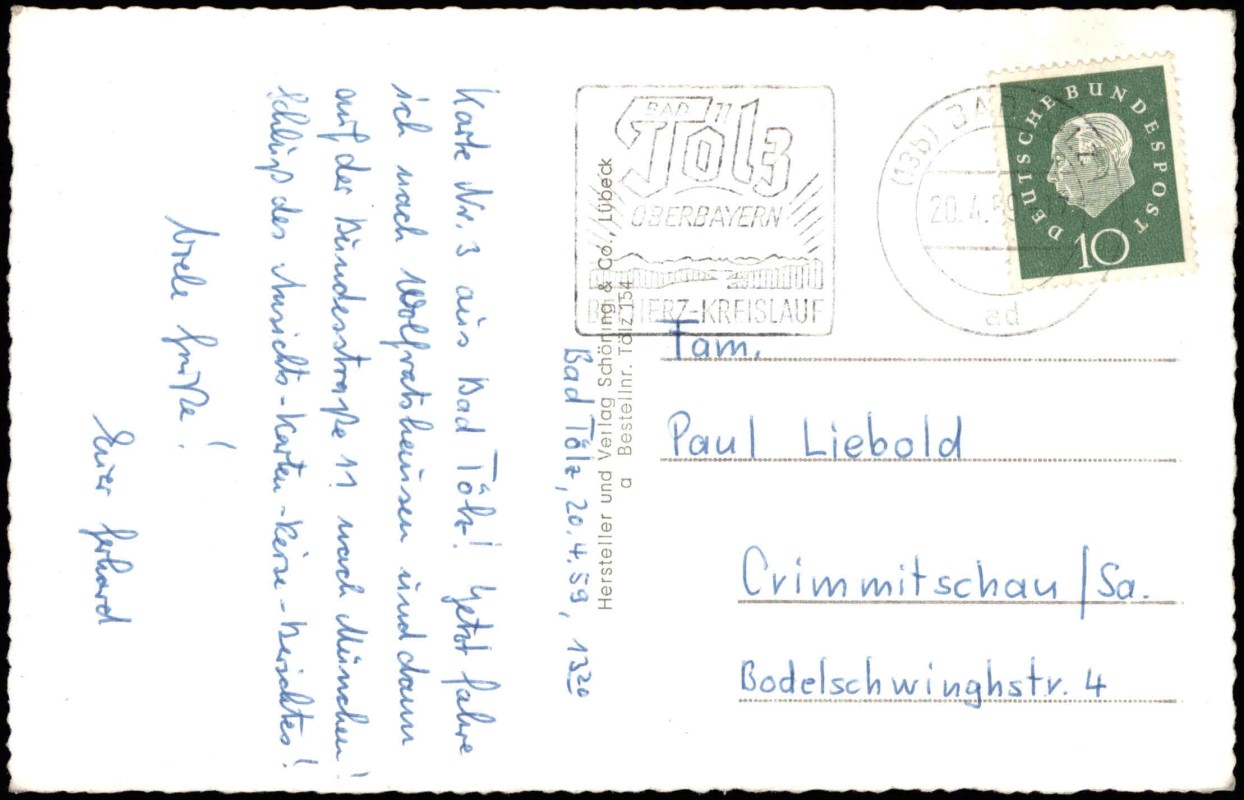 Bad Tölz, 20.4.59, 13 20
Karte Nr. 3 aus Bad Tölz! Jetzt fahre
ich nach Wolfratshausen und dann
auf der Bundesstraße 11 nach München!
Schluß des Ansichts-Karten-Reise-Berichtes!
Viele Grüße!
Euer Gerhard
Hersteller und Verlag Schöning & Co., Lübeck
a Bestellnr. Tölz 154
BAD
Tölz
OBERBAYERN
HERZ-KREISLAUF
(13b) BAD
20.4.59
ad
DEUTSCHE BUNDESPOST
10
Fam.
Paul Liebold
Crimmitschau/Sa.
Bodelschwinghstr. 4